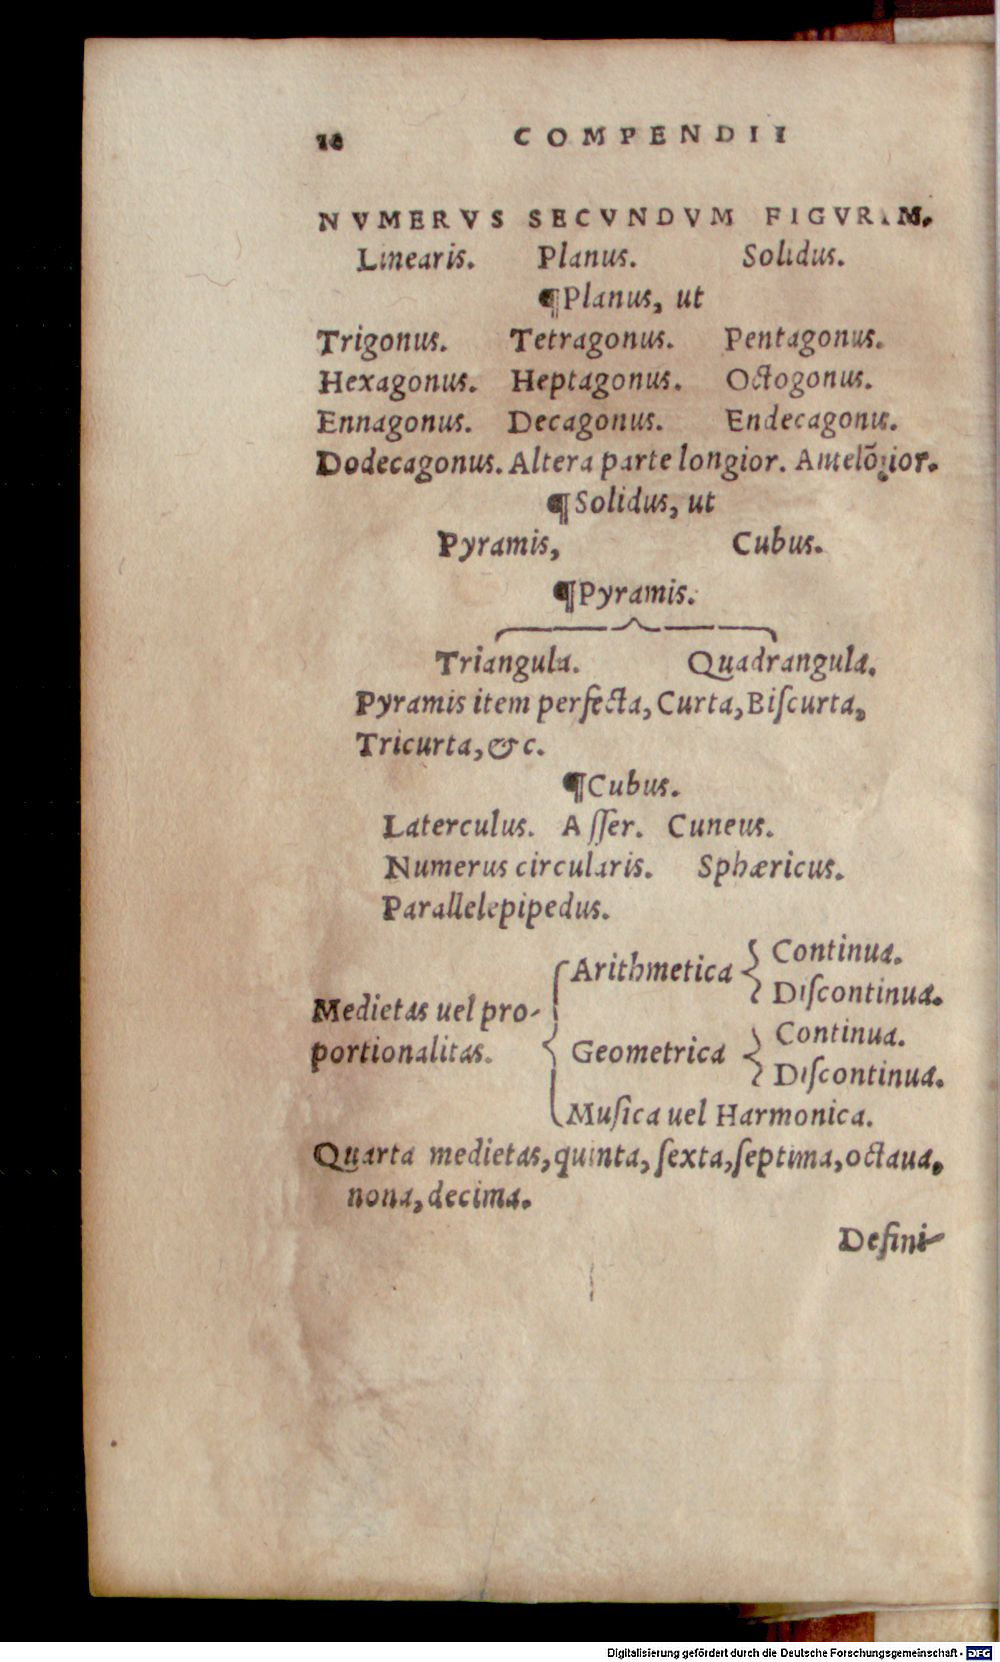 10 COMPENDII
NVMERVS SECVNDVM FIGVRAM.
Linearis. Planus. Solidus.
¶Planus, ut
Trigonus. Tetragonus. Pentagonus.
Hexagonus. Heptagonus. Octogonus.
Ennagonus. Decagonus. Endecagonus.
Dodecagonus. Altera parte longior. Antelõgior.
¶Solidus, ut
Pyramis, Cubus.
¶Pyramis.
Triangula. Quadrangula.
Pyramis item perfecta, Curta, Biſcurta,
Tricurta, &c.
¶Cubus.
Laterculus. Aſſer. Cuneus.
Numerus circularis. Sphæricus.
Parallelepipedus.
Medietas uel pro-
portionalitas.
Arithmetica
Continua.
Diſcontinua.
Geometrica
Continua.
Diſcontinua.
Muſica uel Harmonica.
Quarta medietas, quinta, ſexta, ſeptima, octaua,
nona, decima.
Defini-
Digitalisierung gefördert durch die Deutsche Forschungsgemeinschaft - DFG